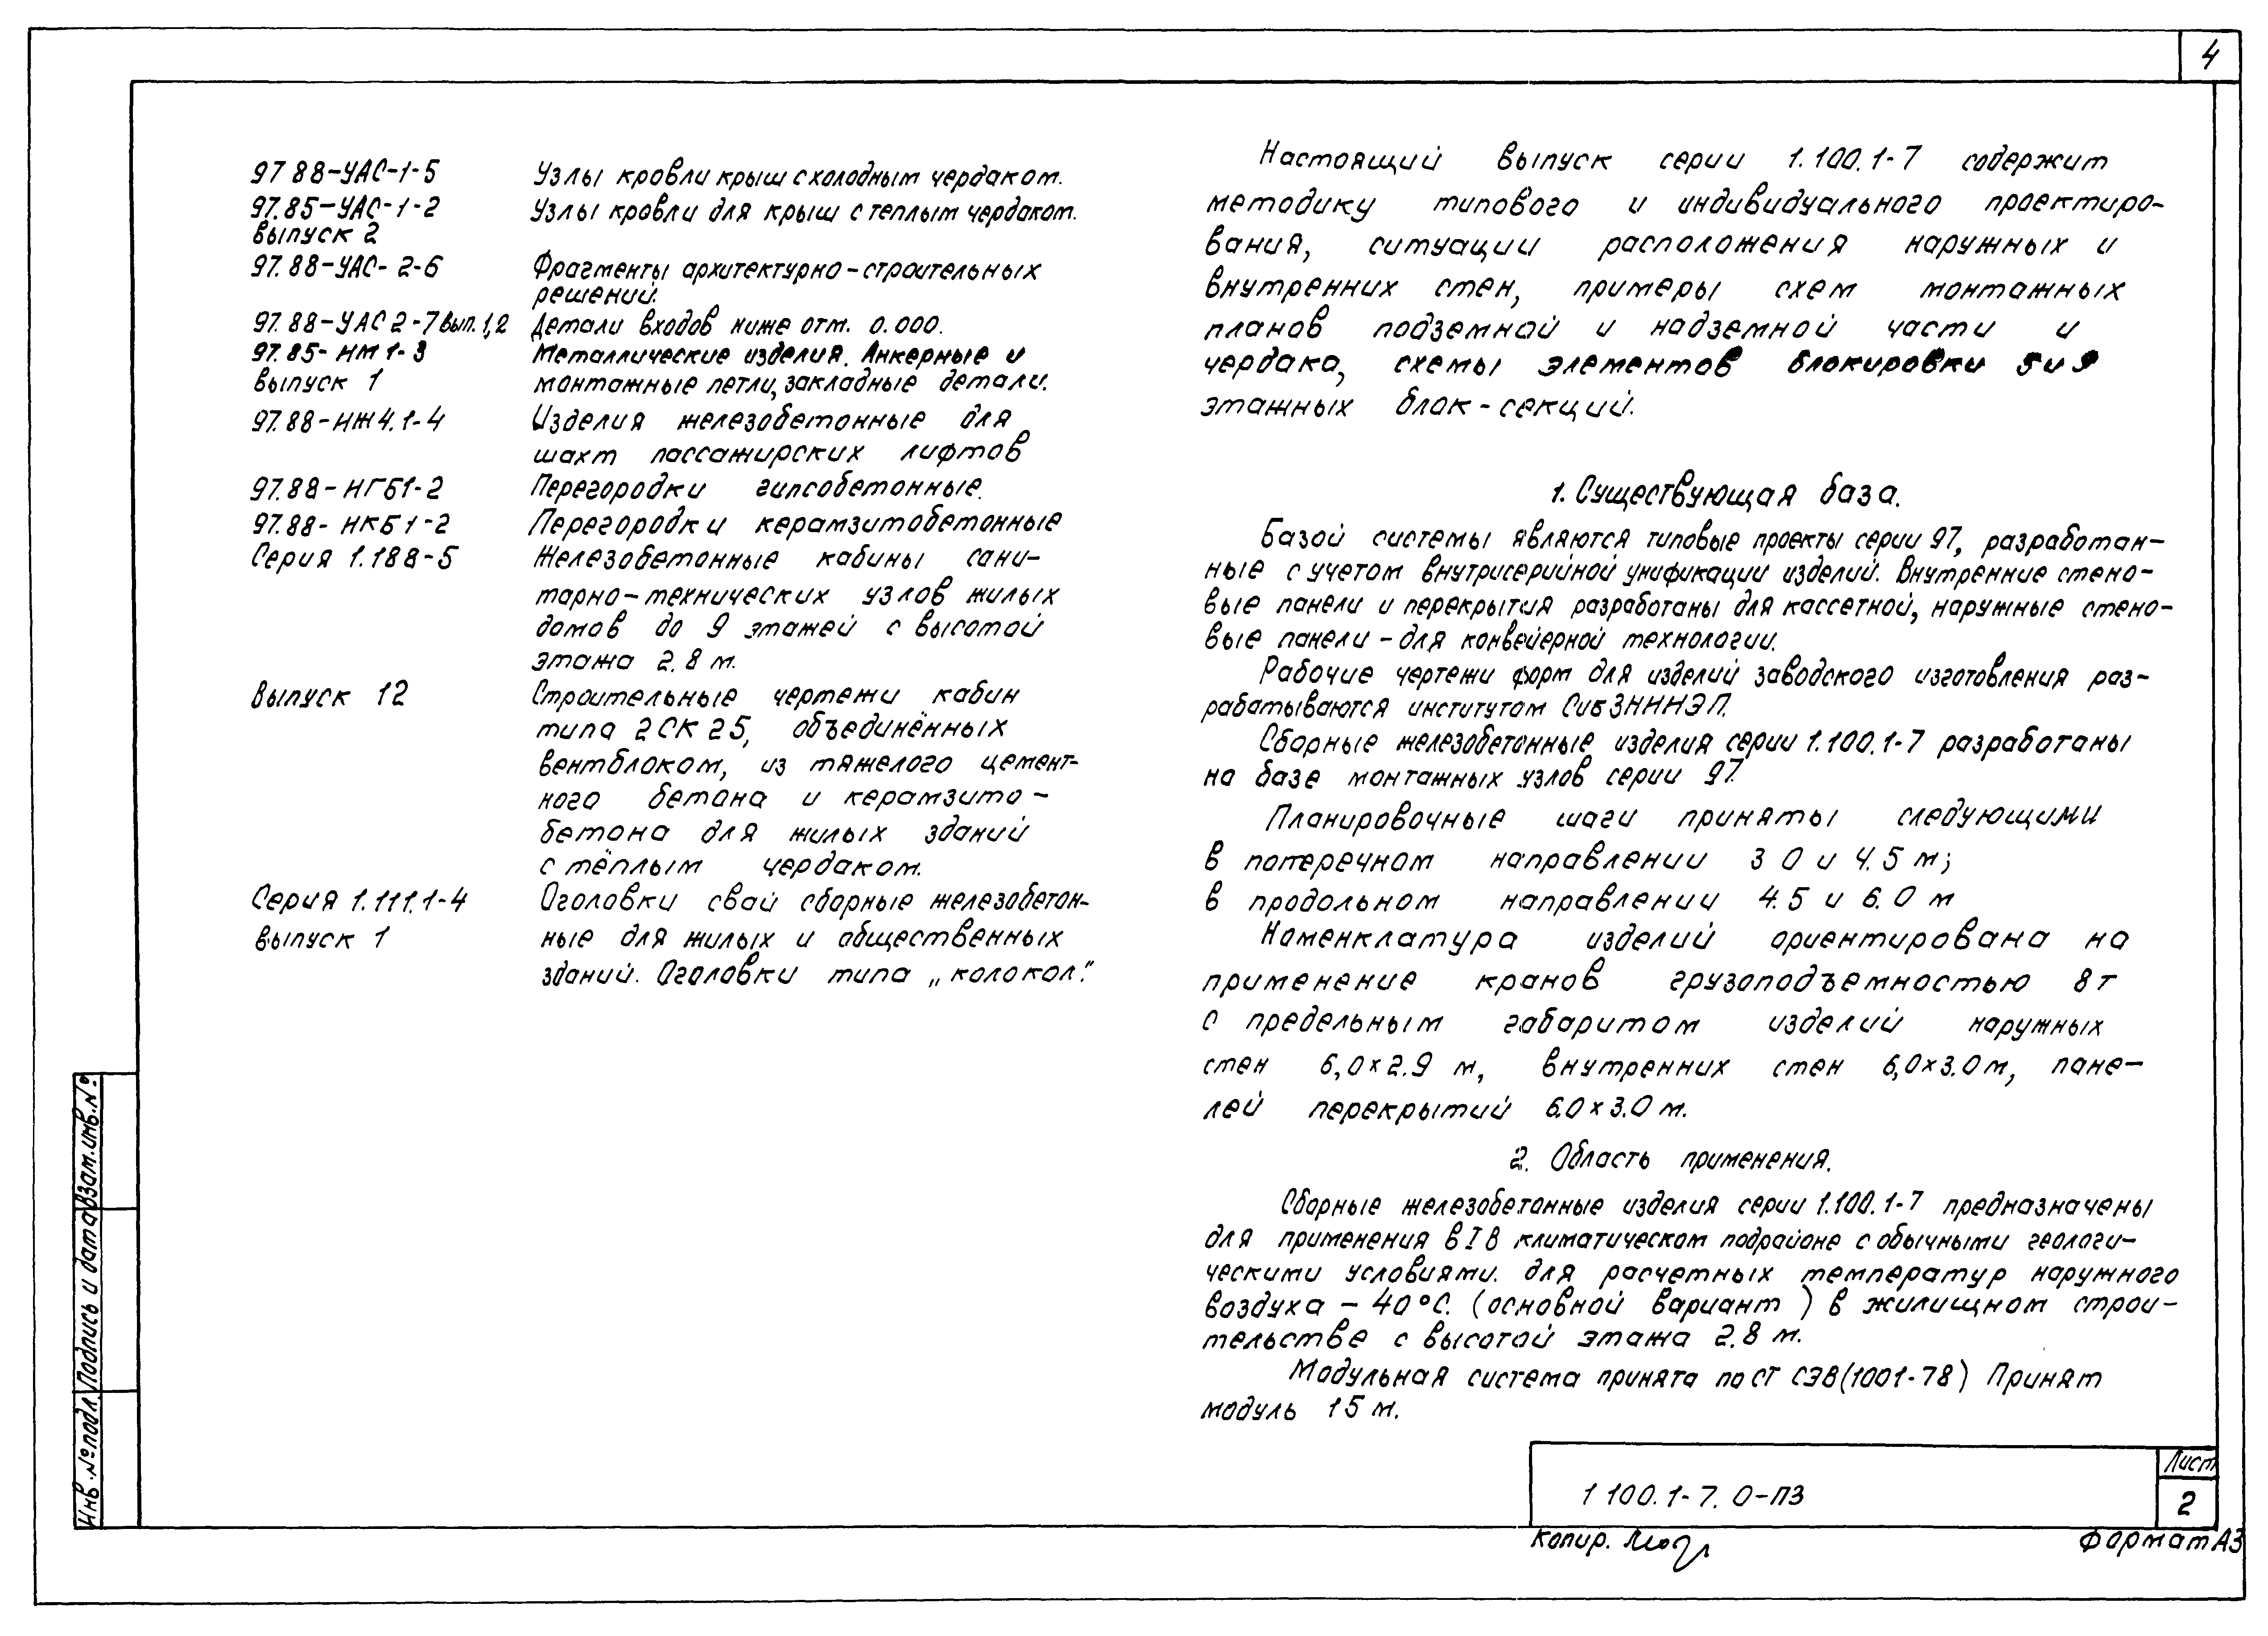 4
97 88-УАС-1-5 Узлы кровли крыш с холодным чердаком.
97.85-УАС-1-2 Узлы кровли для крыш с теплым чердаком.
выпуск 2
97.88-УАС-2-6 Фрагменты архитектурно-строительных
решений.
97.88-УАС 2-7 вып. 1,2 Детали входов ниже отм. 0.000.
97.85-НМ 1-3 Металлические изделия. Анкерные и
выпуск 1 монтажные петли, закладные детали.
97.88-НЖ4.1-4 Изделия железобетонные для
шахт пассажирских лифтов
97.88-НГБ1-2 Перегородки гипсобетонные.
97.88-НКБ1-2 Перегородки керамзитобетонные
Серия 1.188-5 Железобетонные кабины сани-
тарно-технических узлов жилых
домов до 9 этажей с высотой
этажа 2.8 м.
Выпуск 12 Строительные чертежи кабин
типа 2СК25, объединённых
вентблоком, из тяжелого цемент-
ного бетона и керамзито-
бетона для жилых зданий
с тёплым чердаком.
Серия 1.111.1-4 Оголовки свай сборные железобетон-
выпуск 1 ные для жилых и общественных
зданий. Оголовки типа „колокол".
Настоящий выпуск серии 1.100.1-7 содержит
методику типового и индивидуального проектиро-
вания, ситуации расположения наружных и
внутренних стен, примеры схем монтажных
планов подземной и надземной части и
чердака, схемы элементов блокировки 5 и 9
этажных блок-секций.
1. Существующая база.
Базой системы являются типовые проекты серии 97, разработан-
ные с учетом внутрисерийной унификации изделий. Внутренние стено-
вые панели и перекрытия разработаны для кассетной, наружные стено-
вые панели - для конвейерной технологии.
Рабочие чертежи форм для изделий заводского изготовления раз-
рабатываются институтом СибЗНИИЭП.
Сборные железобетонные изделия серии 1.100.1-7 разработаны
на базе монтажных узлов серии 97.
Планировочные шаги приняты следующими
в поперечном направлении 3 0 и 4.5 м;
в продольном направлении 4.5 и 6.0 м
Номенклатура изделий ориентирована на
применение кранов грузоподъемностью 8т
с предельным габаритом изделий наружных
стен 6,0×2.9 м, внутренних стен 6,0×3.0м, пане-
лей перекрытий 6.0×3.0м.
2. Область применения.
Сборные железобетонные изделия серии 1.100.1-7 предназначены
для применения в I В климатическом подрайоне с обычными геологи-
ческими условиями. для расчетных температур наружного
воздуха - 40°С. (основной вариант) в жилищном строи-
тельстве с высотой этажа 2.8 м.
Модульная система принята по СТ СЭВ(1001-78) Принят
модуль 15 м.
Инв. № подл. Подпись и дата Взам. инв. №
1 100.1-7. 0-ПЗ
Лист
2
Копир.
Формат А3